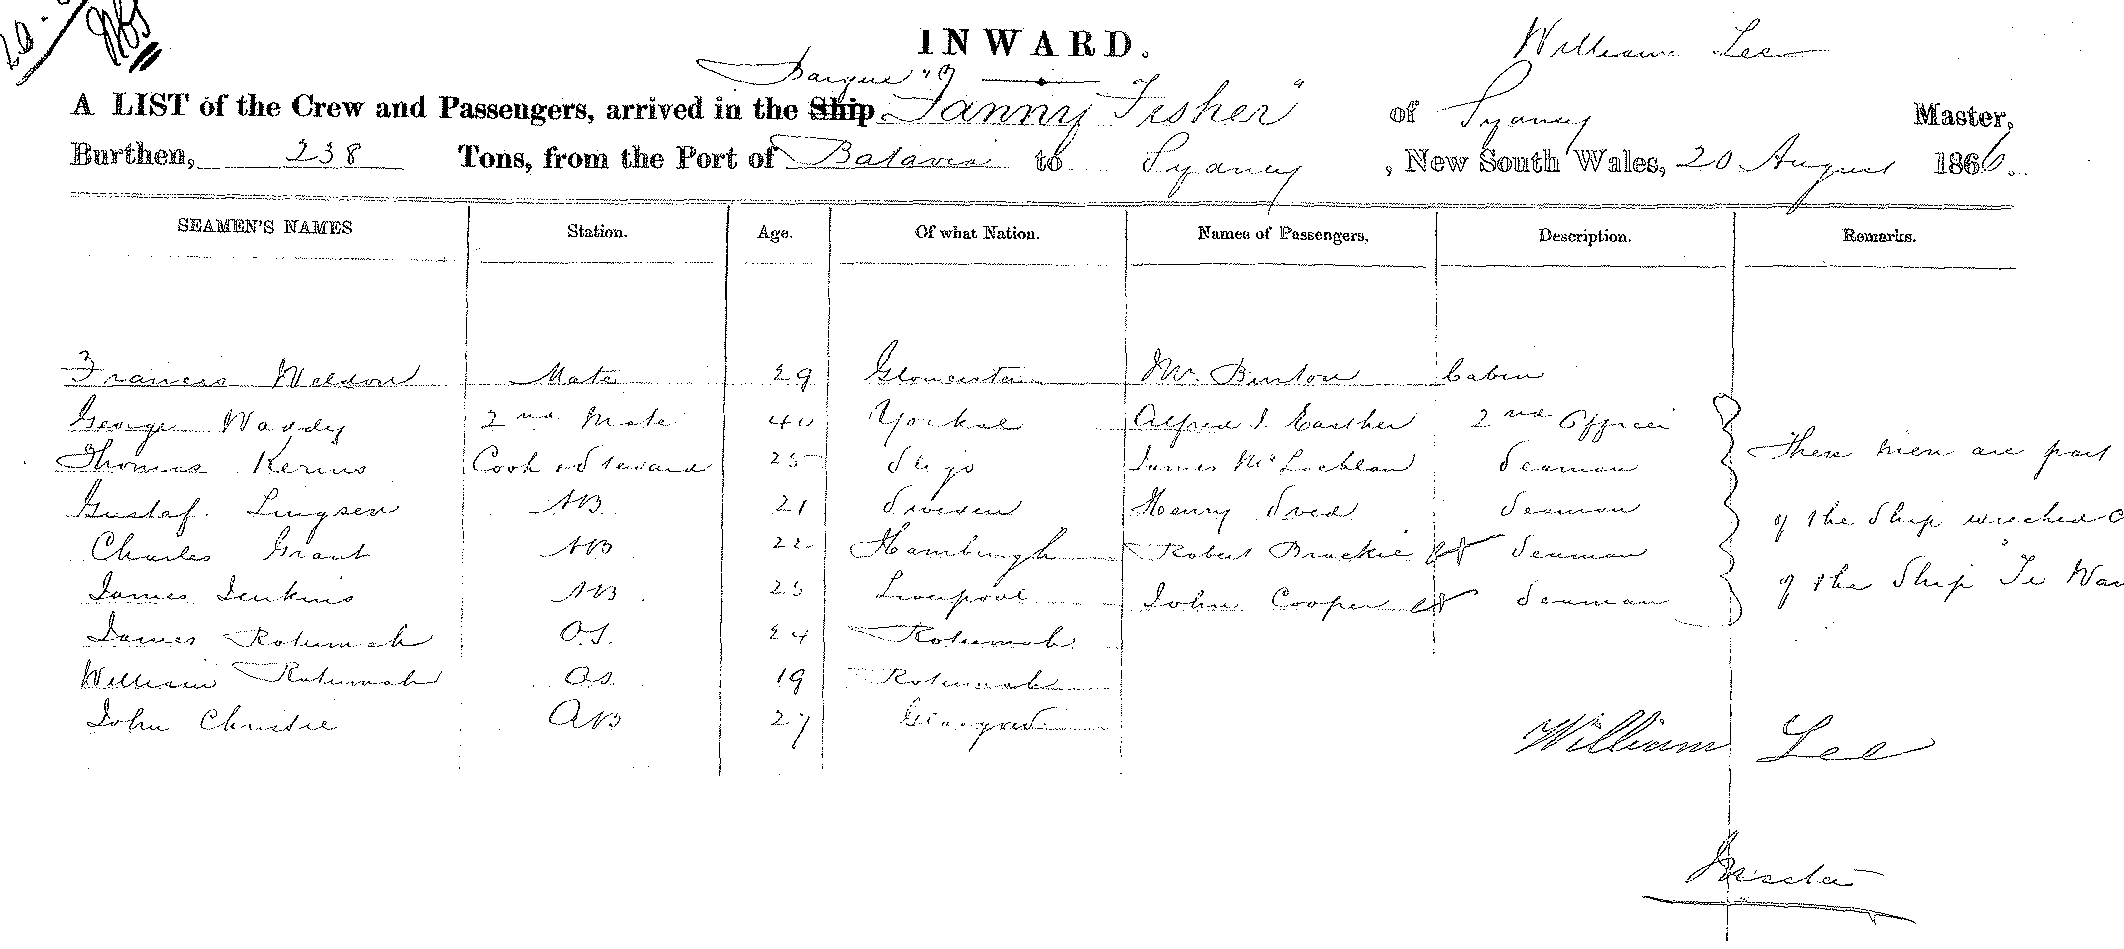 20
INWARD.
William Lee
Barque
A LIST of the Crew and Passengers, arrived in the Ship "Fanny Fisher" of Sydney Master,
Burthen, 238 Tons, from the Port of Batavia to Sydney, New South Wales, 20 August 1866.
SEAMEN'S NAMES Station. Age. Of what Nation. Names of Passengers, Description. Remarks.
Francis Weldon Mate 29 Gloucester Mr. Burton Cabin
George Waddy 2nd Mate 40 York Alfred J. Easther 2nd Officer
Thomas Kerins Cook & Steward 25 Sligo James McLochlan Seaman These men are part
Gustaf. Lingsen AB 21 Sweden Henry Sved Seaman of the Ship wrecked C
Charles Grant AB 22 Hamburgh Robert Brackie Seaman
James Jenkins AB 25 Liverpool John Cooper Seaman of the Ship Te
James Rotumah OS. 24 Rotumah
William Rotumah OS 19 Rotumah
John Christie AB 27
William Lee
Master